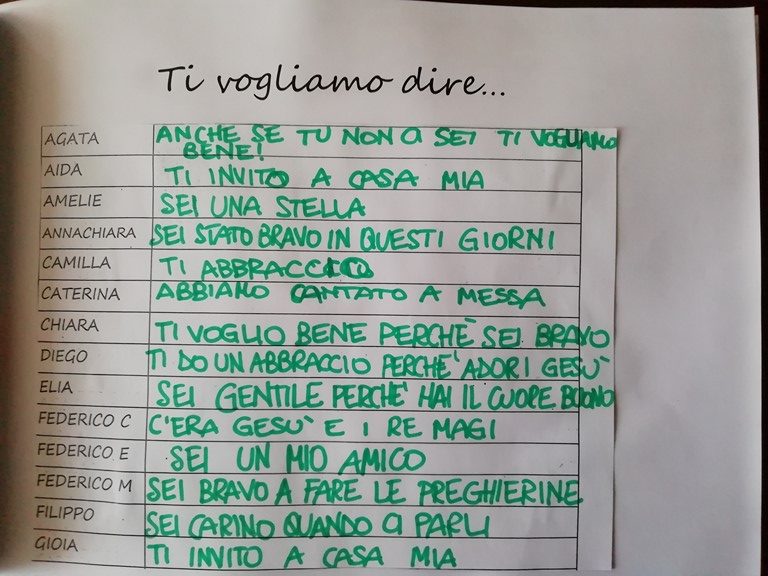 Ti vogliamo dire...
AGATA ANCHE SE TU NON CI SEI TI VOGLIAMO
BENE!
AIDA TI INVITO A CASA MIA
AMELIE SEI UNA STELLA
ANNACHIARA SEI STATO BRAVO IN QUESTI GIORNI
CAMILLA TI ABBRACCIO
CATERINA ABBIAMO CANTATO A MESSA
CHIARA TI VOGLIO BENE PERCHÈ SEI BRAVO
DIEGO TI DO UN ABBRACCIO PERCHE' ADORI GESU'
ELIA SEI GENTILE PERCHE' HAI IL CUORE BUONO
FEDERICO C C'ERA GESU' E I RE MAGI
FEDERICO E SEI UN MIO AMICO
FEDERICO M SEI BRAVO A FARE LE PREGHIERINE
FILIPPO SEI CARINO QUANDO CI PARLI
GIOIA TI INVITO A CASA MIA